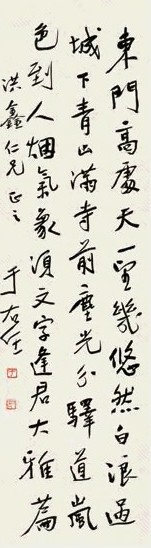 東門高處天一望幾悠然白浪過
城下青山滿寺前塵光分驛道嵐
色到人煙氣象須文字逢君大雅篇
洪鑫仁兄正之
于右任